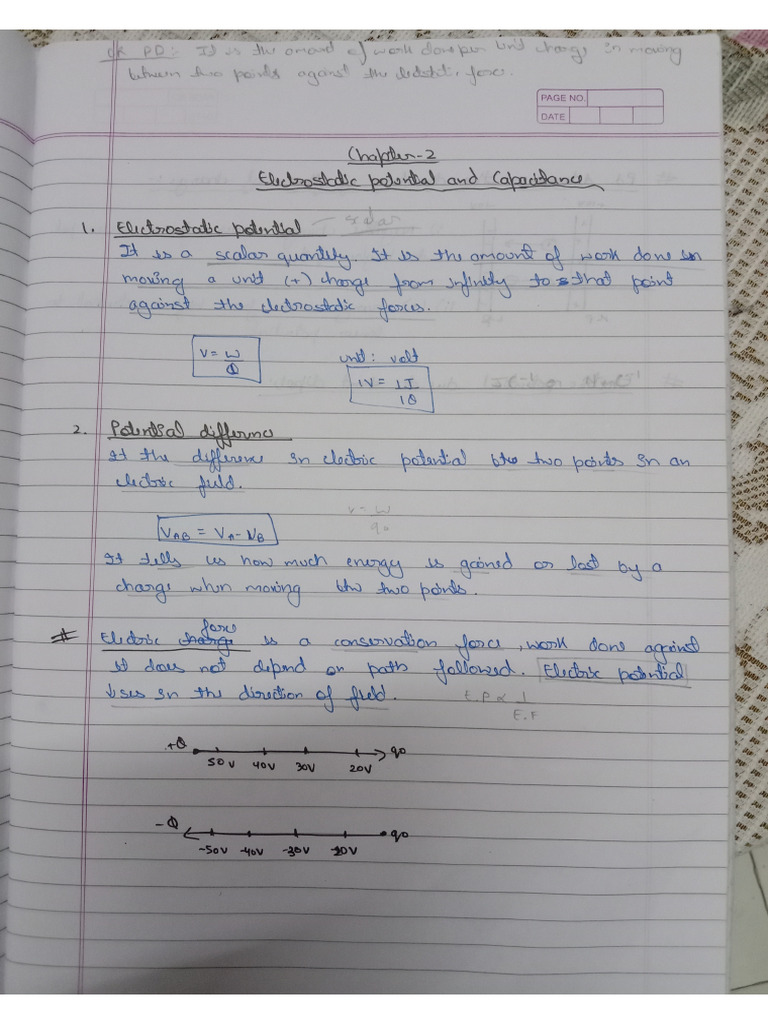 OR PD:- It is the amount of work done per unit charge in moving
between two points against the force.
PAGE NO.
DATE
Chapter-2
Electrostatic potential and Capacitance
1. Electrostatic potential – scalar
It is a scalar quantity. It is the amount of work done in
moving a unit (+) charge from infinity to that point
against the electrostatic forces.
V = W/Q
unit: volt
1V = 1J/1Q
2. Potential difference
It the difference in electric potential btw two points in an
electric field.
V = W/q0
VAB = VA - VB
It tells us how much energy is gained or lost by a
charge when moving btw two points.
force
# Electric charge is a conservation force, work done against
it does not depend on path followed. Electric potential
↓ses in the direction of field.
E.P ∝ 1/E.F
+Q q0
50V 40V 30V 20V
-Q q0
-50V -40V -30V -20V